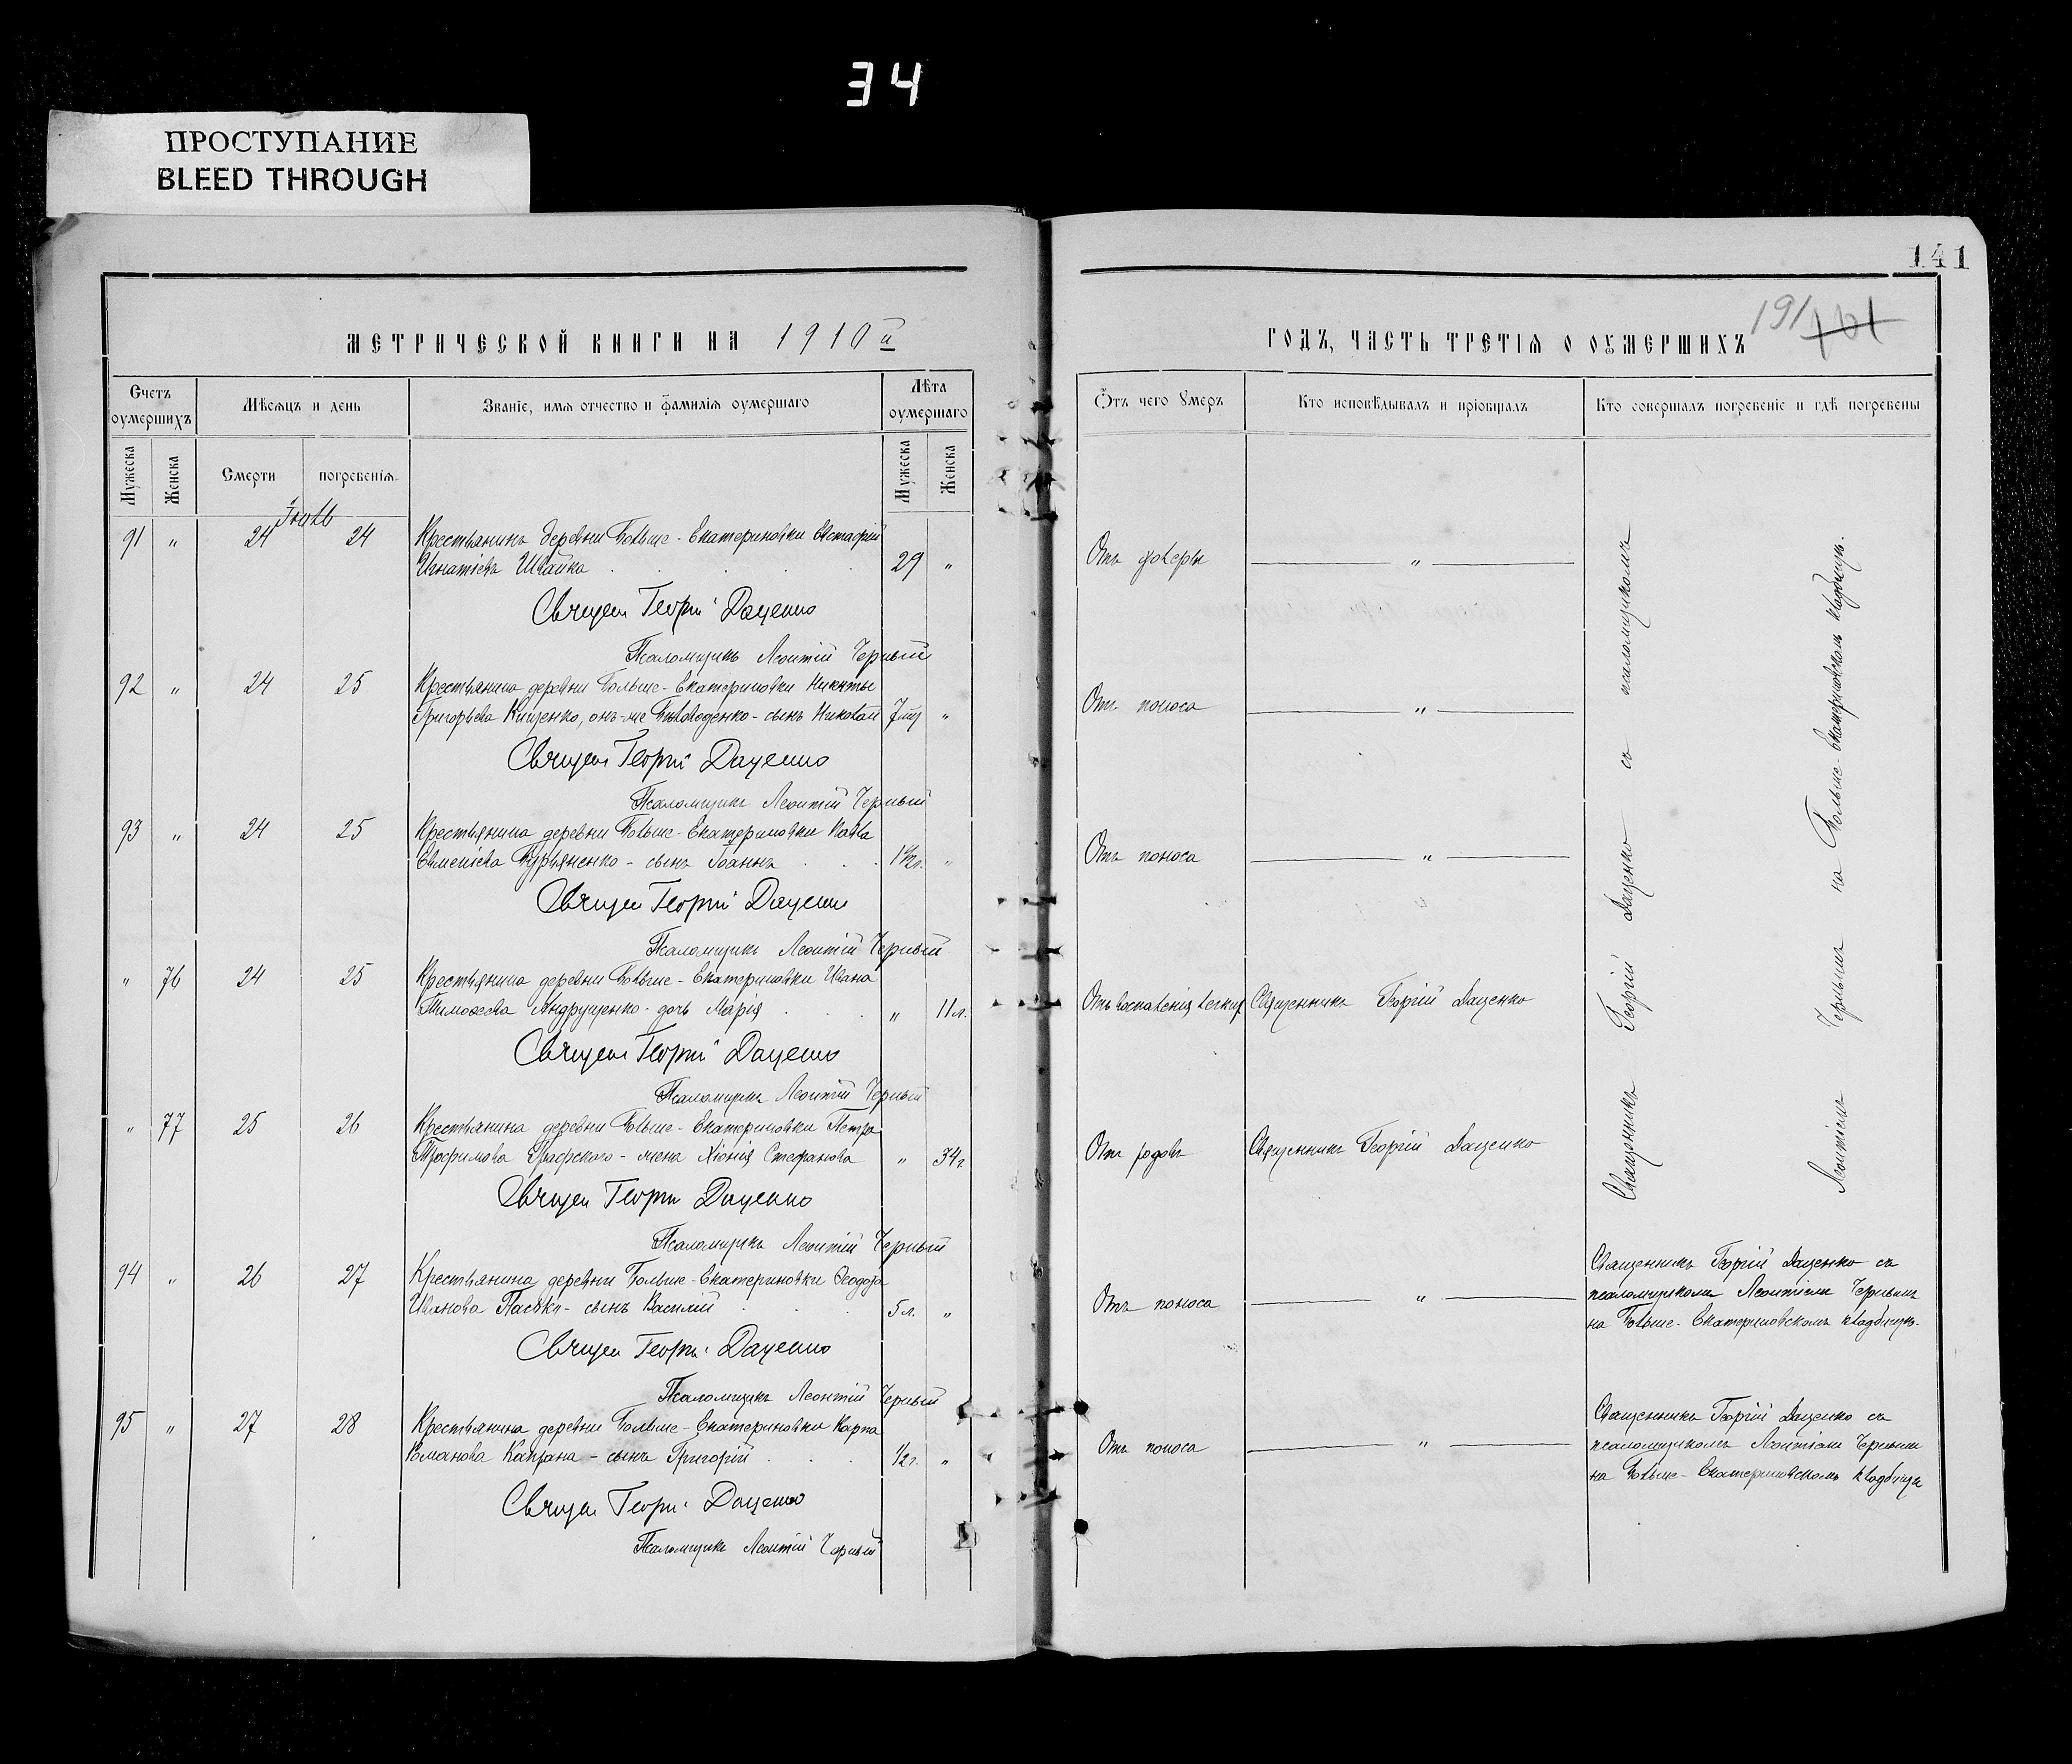 34
ПРОСТУПАНИЕ
BLEED THROUGH
141
МЕТРИЧЕСКОЙ КНИГИ НА 1910й
ГОДЪ, ЧАСТЬ ТРЕТІЯ О ОУМЕРШИХЪ
191 101
Счетъ оумершихъ
Мѣсяцъ и день
Званіе, имя отчество и фамилія оумершаго
Лѣта оумершаго
Отъ чего Умеръ
Кто исповѣдывалъ и пріобщалъ
Кто совершалъ погребеніе и гдѣ погребены
Мужеска
Женска
Смерти
погребенія
Мужеска
Женска
Іюль
91 " 24 24 Крестьянинъ деревни Больше-Екатериновки Евстафій
Игнатіевъ Швайка 29 " Отъ холеры "
Священ Георгій Даценко
Псаломщикъ Леонтій Черный
92 " 24 25 Крестьянина деревни Больше-Екатериновки Никиты
Григорьева Кищенко, онъ-же - сынъ Николай 7 мц " Отъ поноса "
Священ Георгій Даценко
Псаломщикъ Леонтій Черный
93 " 24 25 Крестьянина деревни Больше-Екатериновки Павла
Евменіева Бурьяненко - сынъ Іоаннъ 1½ г. " Отъ поноса "
Священ Георгій Даценко
Псаломщикъ Леонтій Черный
" 76 24 25 Крестьянина деревни Больше-Екатериновки Ивана
Тимоѳеева Андрущенко - дочь Марія " 11 л. Отъ воспаленія легких Священникъ Георгій Даценко
Священ Георгій Даценко
Псаломщикъ Леонтій Черный
" 77 25 26 Крестьянина деревни Больше-Екатериновки Петра
Трофимова Графского - жена Хіонія Стефанова " 34 г. Отъ родовъ Священникъ Георгій Даценко
Священ Георгій Даценко
Псаломщикъ Леонтій Черный
Священникъ Георгій Даценко съ псаломщикомъ
Леонтіемъ Чернымъ на Больше-Екатериновскомъ кладбищѣ.
94 " 26 27 Крестьянина деревни Больше-Екатериновки Ѳеодора
Иванова Пасѣка - сынъ Василій 5 л. " Отъ поноса "
Священникъ Георгій Даценко съ
псаломщикомъ Леонтіемъ Чернымъ
на Больше-Екатериновскомъ кладбищѣ.
Священ Георгій Даценко
Псаломщикъ Леонтій Черный
95 " 27 28 Крестьянина деревни Больше-Екатериновки Карпа
Романова Капрана - сынъ Григорій ½ г. " Отъ поноса "
Священникъ Георгій Даценко съ
псаломщикомъ Леонтіемъ Чернымъ
на Больше-Екатериновскомъ кладбищѣ
Священ Георгій Даценко
Псаломщикъ Леонтій Черный